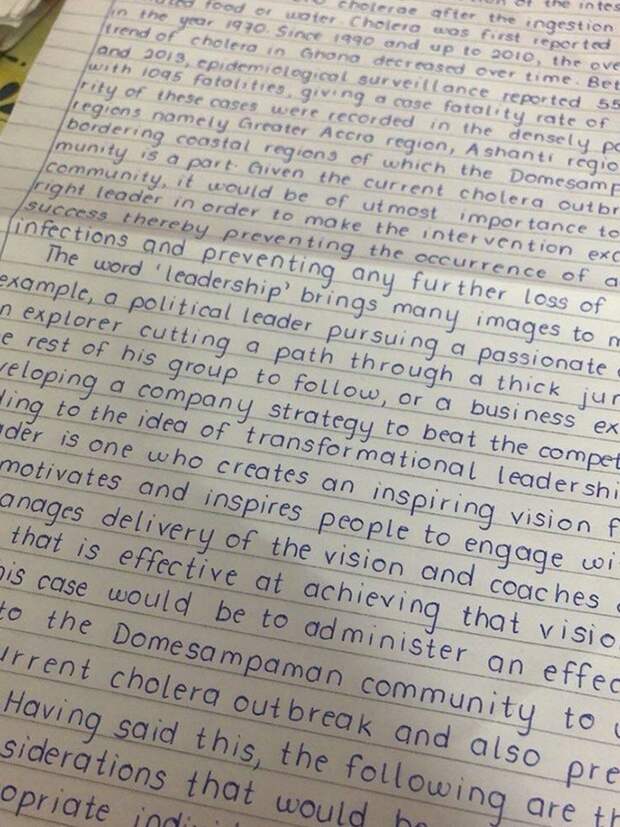 of the intes
food or water. Cholera was first reported
in the year 1970. Since 1990 and up to 2010, the ove
trend of cholera in Ghana decreased over time. Bet
and 2013, epidemiological surveillance reported 55
with 1095 fatalities, giving a case fatality rate of
rity of these cases were recorded in the densely po
regions namely Greater Accra region, Ashanti regio
bordering coastal regions of which the Domesamp
munity is a part. Given the current cholera outbr
community, it would be of utmost importance to
right leader in order to make the intervention exc
success thereby preventing the occurrence of a
infections and preventing any further loss of
The word 'leadership' brings many images to m
example, a political leader pursuing a passionate
n explorer cutting a path through a thick jun
e rest of his group to follow, or a business ex
veloping a company strategy to beat the compet
ding to the idea of transformational leadershi
ader is one who creates an inspiring vision f
motivates and inspires people to engage wi
anages delivery of the vision and coaches
that is effective at achieving that visio
his case would be to administer an effec
to the Domesampaman community to
urrent cholera outbreak and also pre
Having said this, the following are th
siderations that would be
opriate